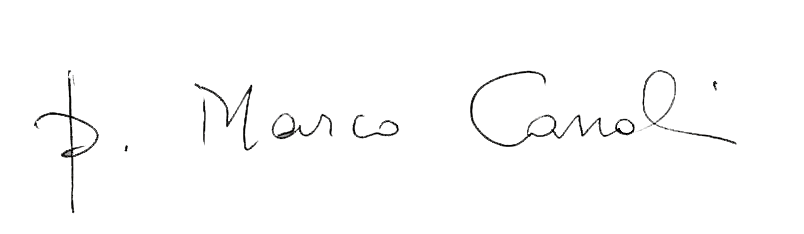 p. Marco Canoli